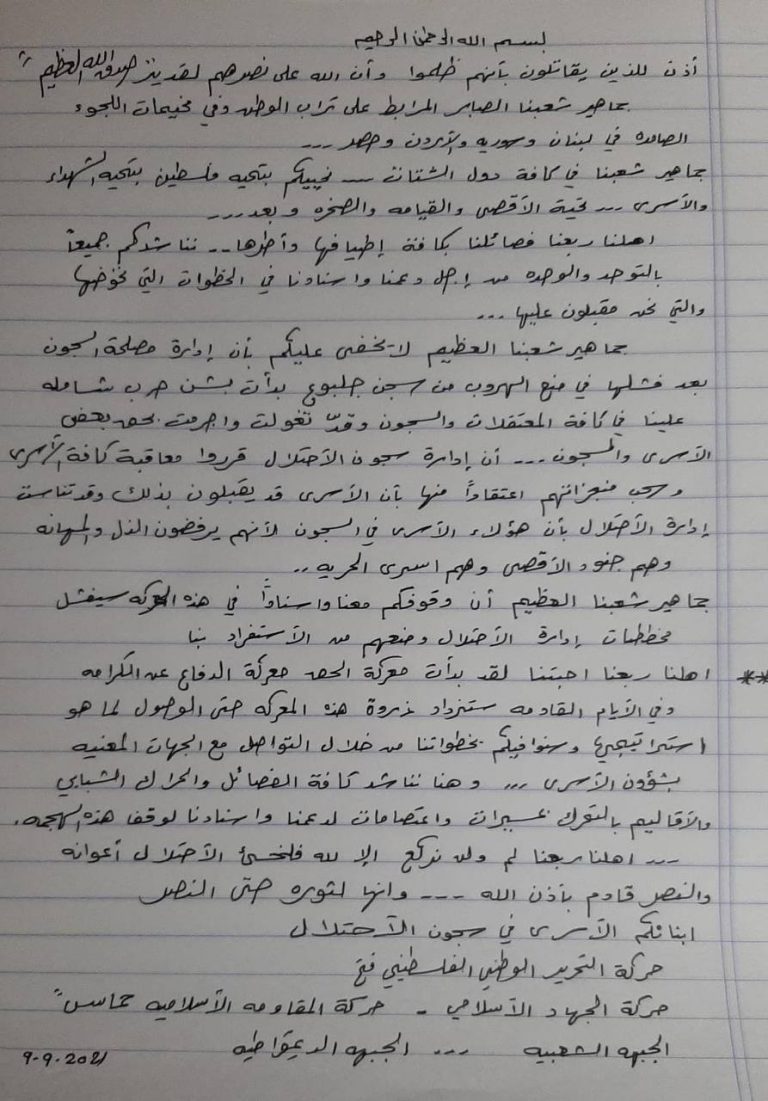 بسم الله الرحمن الرحيم
أذن للذين يقاتلون بأنهم ظلموا وأن الله على نصرهم لقدير صدق الله العظيم
جماهير شعبنا الصابر المرابط على تراب الوطن وفي مخيمات اللجوء
الصامده في لبنان وسوريه والأردن ومصر ...
جماهير شعبنا في كافة دول الشتات ... نحييكم بتحيه فلسطين بتحيه الشهداء
والأسرى ... تحية الأقصى والقيامه والصخره وبعد ...
اهلنا ربعنا فصائلنا بكافة إطيافها وأطرها .. نناشدكم جميعاً
بالتوحد والوحده من إجل دعمنا واسنادنا في الخطوات التي نخوضها
والتي نحن مقبلون عليها ...
جماهير شعبنا العظيم لا يخفى عليكم بأن إدارة مصلحة السجون
بعد فشلها في منع الهروب من سجن جلبوع بدأت بشن حرب شامله
علينا في كافة المعتقلات والسجون وقد تغولت واجرمت بحق بعض
الأسرى والسجون ... أن إدارة سجون الأحتلال قرروا معاقبة كافة الأسرى
وسحب منجزاتهم اعتقاداً منها بأن الأسرى قد يقبلون بذلك وقد تناست
إدارة الأحتلال بأن هؤلاء الأسرى في السجون لأنهم يرفضون الذل والمهانه
وهم جنود الأقصى وهم اسرى الحريه ..
جماهير شعبنا العظيم أن وقوفكم معنا واسناداً في هذه المعركه سيفشل
مخططات إدارة الأحتلال ومنعهم من الأستفراد بنا
** اهلنا ربعنا احبتنا لقد بدأت معركة الحق معركة الدفاع عن الكرامه
وفي الأيام القادمه ستزداد ذروة هذه المعركه حتى الوصول لما هو
استراتيجي وسنوافيكم بخطواتنا من خلال التواصل مع الجهات المعنيه
بشؤون الأسرى ... وهنا نناشد كافة الفصائل والحراك الشبابي
والأقاليم بالتحرك بمسيرات واعتصامات لدعمنا واسنادنا لوقف هذه الهجمه.
... اهلنا ربعنا لم ولن نركع إلا لله فلخسئ الأحتلال أعوانه
والنصر قادم بأذن الله ... وانها لثوره حتى النصر
ابنائكم الأسرى في سجون الأحتلال
حركة التحرير الوطني الفلسطيني فتح
حركة الجهاد الأسلامي - حركة المقاومه الأسلاميه حماس"
الجبهه الشعبيه ... الجبهه الديمقراطيه
9-9-2021